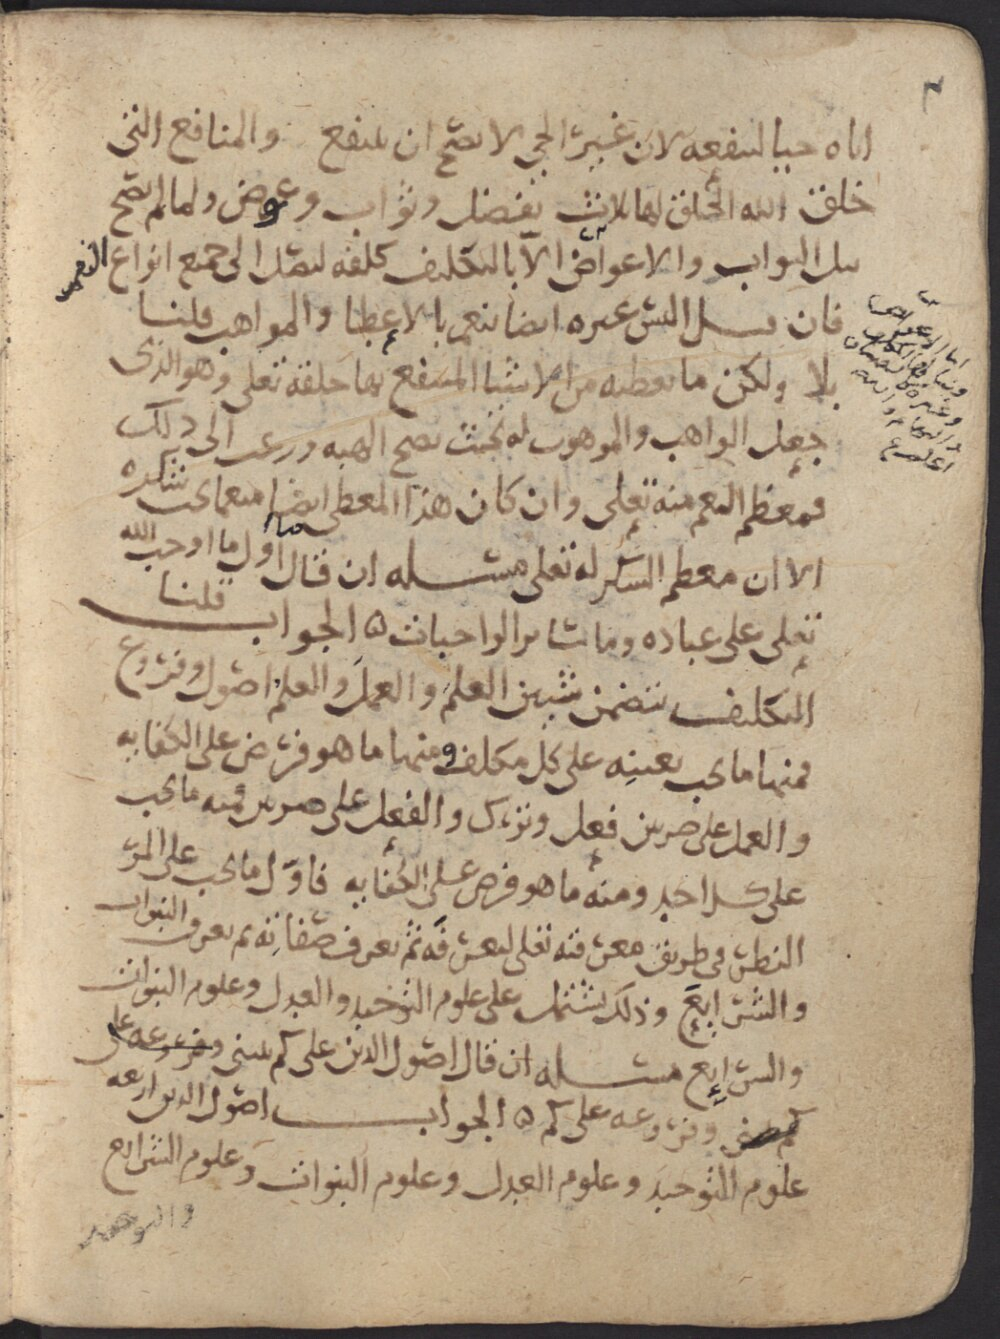 اياه حيا لينفعه لان غير الحي لا يصح ان ينفع والمنافع التي
خلق الله الخلق لها ثلاث تفضل وثواب وعوض ولما لم يصح
نيل الثواب والاعواض الا بالتكليف كلفه ليصل الى جميع انواع النعيم
فان قيل اليس غيره ايضا ينعم بالاعطا والمواهب قلنا
بلا ولكن ما يعطيه من الاشيا المنتفع بها خلقه تعلى وهو الذي
جعل الواهب والموهوب له بحيث تصح الهبه ورغب الى ذلك
فمعظم النعم منه تعلى وان كان هذا المعطي ايضا منعما يجب شكره
الا ان معظم الشكر له تعلى مسئله ان قال ما اول ما اوجب الله
تعلى على عباده وما سائر الواجبات ه الجواب قلنا
التكليف يتضمن شيين العلم والعمل والعلم اصول وفروع
فمنها ما يجب بعينه على كل مكلف ومنها ما هو فرض على الكفايه
والعمل على ضربين فعل وترك والفعل على ضربين فمنه ما يجب
على كل احد ومنه ما هو فرض على الكفايه فاول ما يجب على المرء
النظر في طريق معرفته تعلى ليعرفه ثم يعرف صفاته ثم يعرف النبوات
والشرايع وذلك يشتمل على علوم التوحيد والعدل وعلوم النبوات
والشرايع مسئله ان قال اصول الدين على كم يبنى وفروعه على
كم وفروعه على كم ه الجواب اصول الدين اربعه
علوم التوحيد وعلوم العدل وعلوم النبوات وعلوم الشرايع
والتوحيد